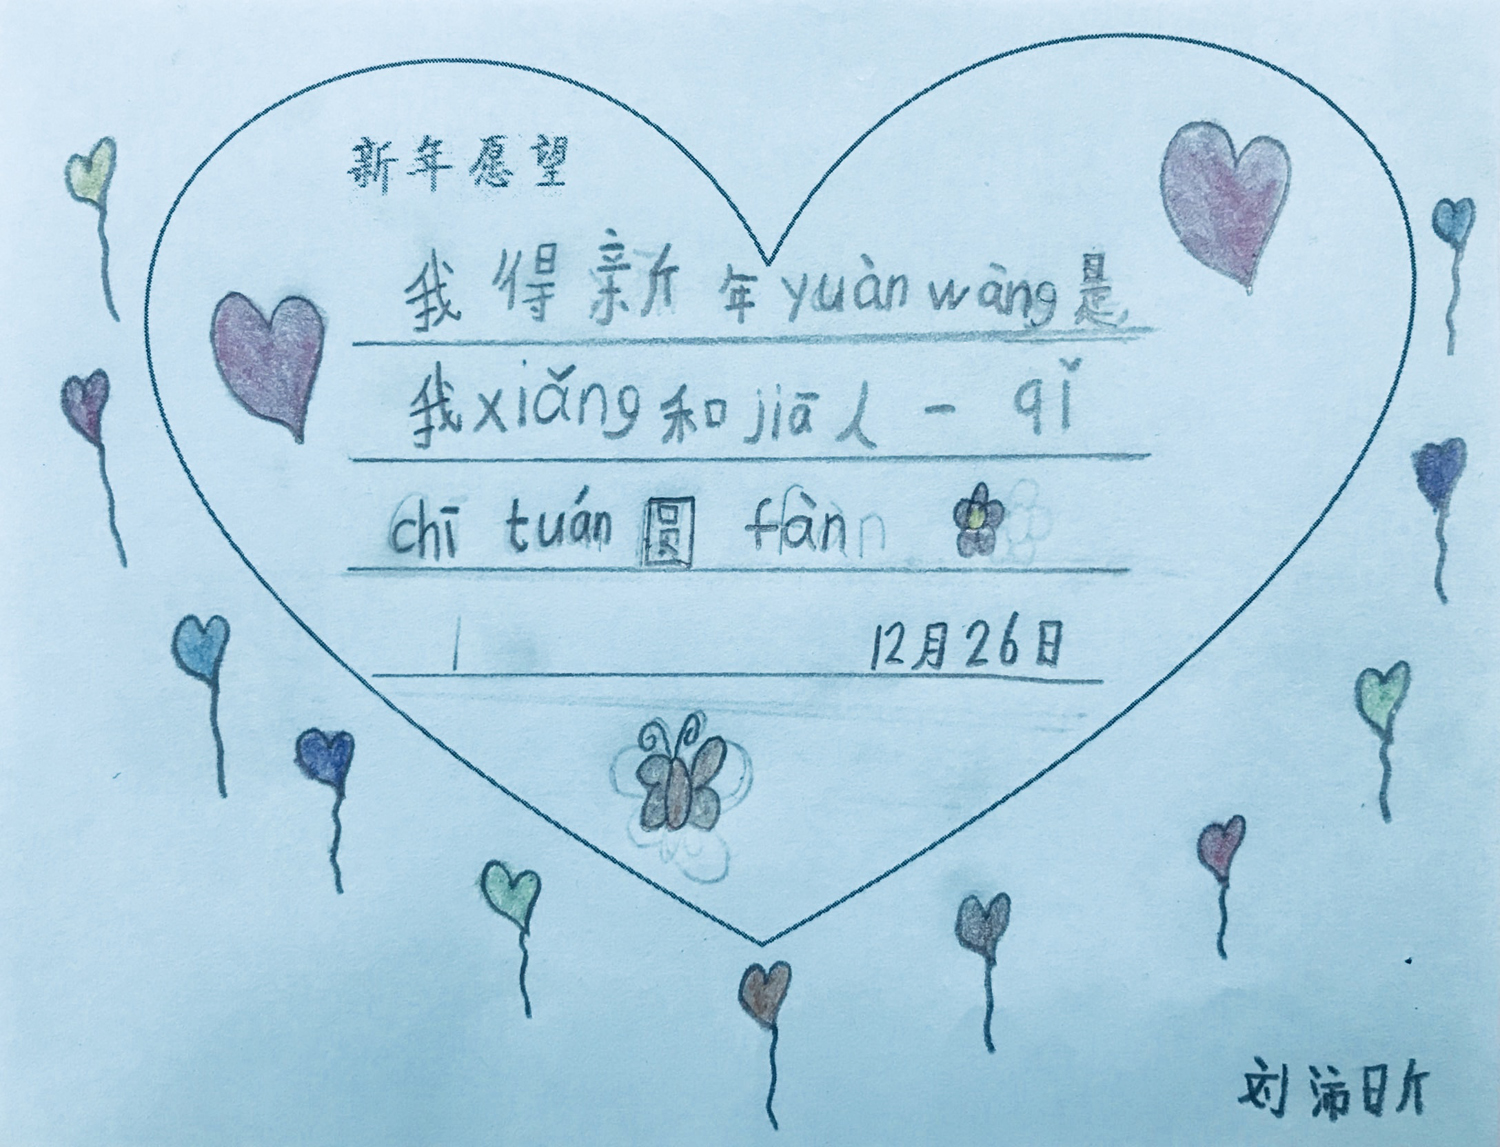 新年愿望
我得新年yuàn wàng是
我xiǎng和jiā人一qǐ
chī tuán圆fàn
12月26日
刘沛昕